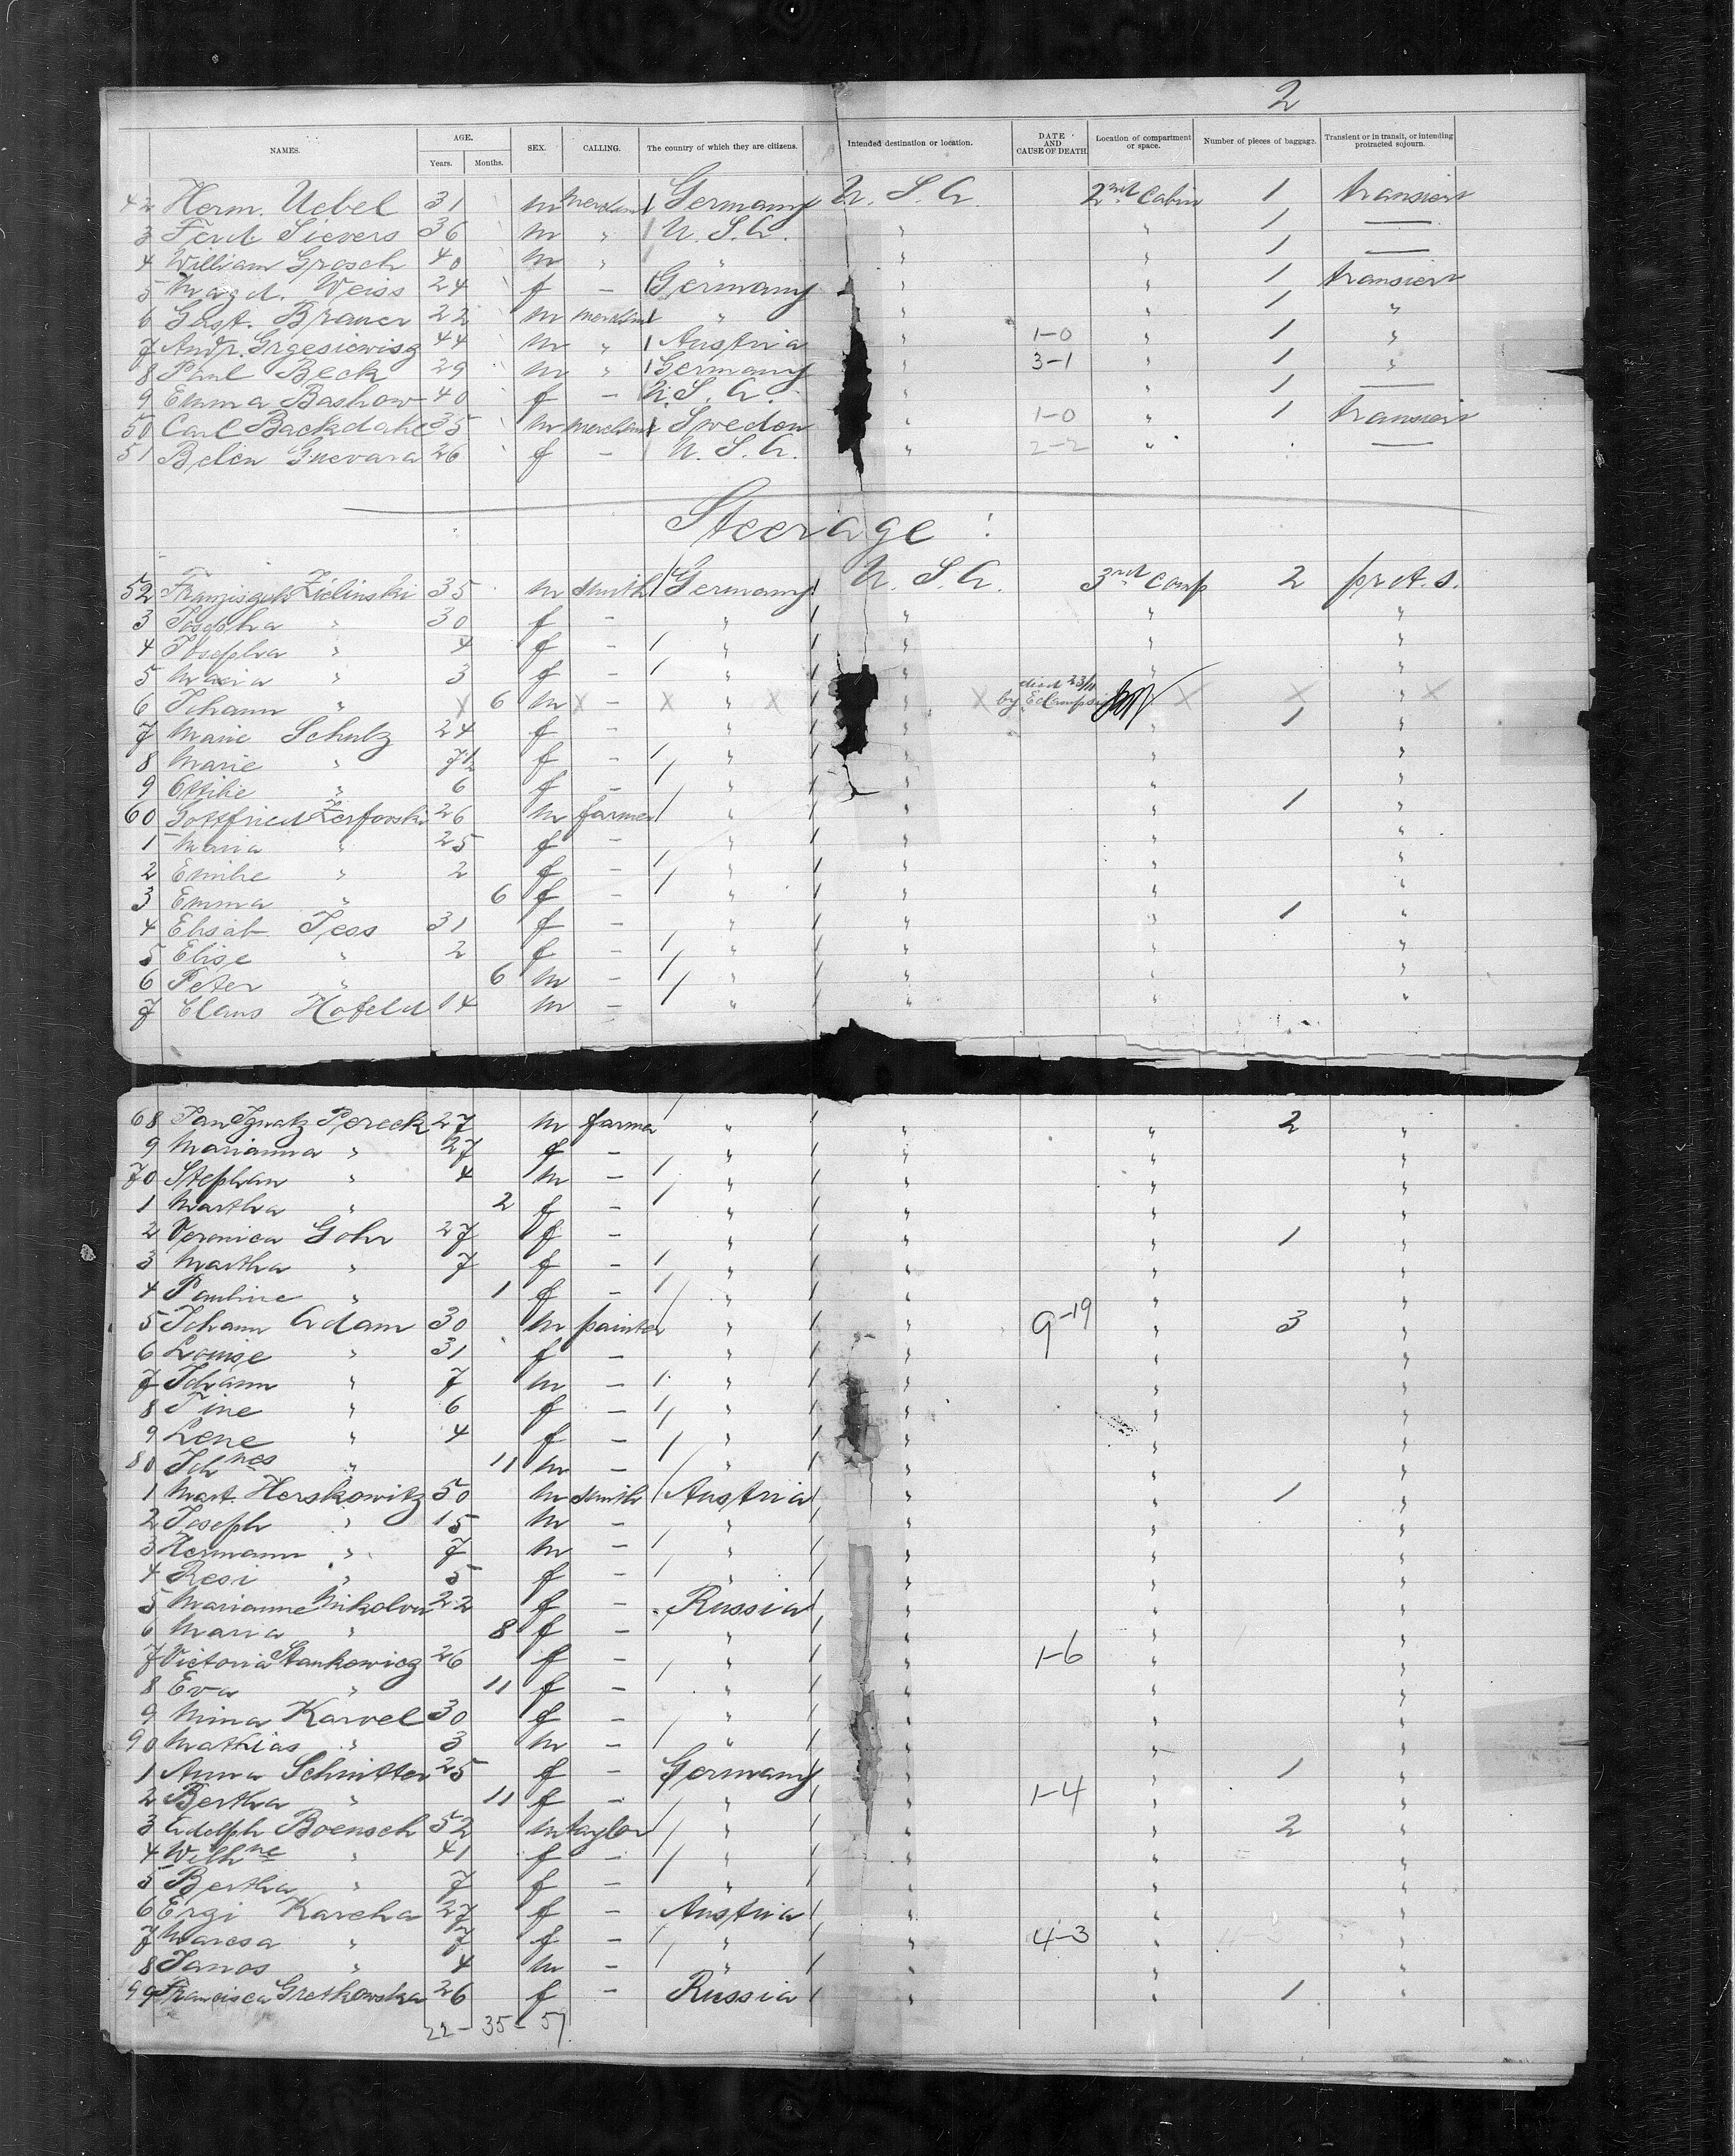 2
NAMES. AGE. Years. Months. SEX. CALLING. The country of which they are citizens. Intended destination or location. DATE AND CAUSE OF DEATH. Location of compartment or space. Number of pieces of baggage. Transient or in transit, or intending protracted sojourn.
42 Herm. Uebel 31 m merchant Germany U. S. A. 2nd Cabin 1 transient
3 Ferd. Sievers 36 m " U. S. A. " " 1 —
4 William Grosch 40 m " " " " 1 —
5 Magd. Weiss 24 f — Germany " " 1 transient
6 Gust. Brauer 22 m merchant " " " 1 "
7 Andr. Grgesiewisg 44 m " Austria " 1-0 " 1 "
8 Paul Beck 29 m " Germany " 3-1 " 1 "
9 Emma Bashow 40 f — U. S. A. " " 1 —
50 Carl Backdahl 35 m merchant Sweden " 1-0 " 1 transient
51 Belen Guevara 26 f — U. S. A. " 2-2 " —
Steerage !
52 Franzisgek Zielinski 35 m smith Germany U. S. A. 3rd Comp 2 prot. s.
3 " 30 f — " " " "
4 Josepha " 4 f — " " " "
5 Maria " 3 f — " " " "
6 Johann " 6 m — " " died 23/11 by "
7 Marie Schulz 24 f — " " " 1 "
8 Marie " 7 1/2 f — " " " "
9 Ottilie " 6 f — " " " "
60 Gottfried Zerfowski 26 m farmer " " " 1 "
1 Maria " 25 f — " " " "
2 Emilie " 2 f — " " " "
3 Emma " 6 f — " " " "
4 Elisab Tess 31 f — " " " 1 "
5 Elise " 2 f — " " " "
6 Peter " 6 m — " " " "
7 Claus Hofeld 14 m — " " " "
68 Jan Ignatz Pereck 27 m farmer " " " 2 "
9 Marianna " 27 f — " " " "
70 Stephan " 4 m — " " " "
1 Martha " 2 f — " " " "
2 Veronica Gohr 27 f — " " " 1 "
3 Martha " 7 f — " " " "
4 Pauline " 1 f — " " " "
5 Johann Adam 30 m painter " " 9-19 " 3 "
6 Louise " 31 f — " " " "
7 Johann " 7 m — " " " "
8 Tine " 6 f — " " " "
9 Lene " 4 f — " " " "
80 Johnes " 11 m — " " " "
1 Mart. Herskowitz 50 m smith Austria " " 1 "
2 Joseph " 15 m — " " " "
3 Hermann " 7 m — " " " "
4 Resi " 5 f — " " " "
5 Marianne 22 f — Russia " " "
6 Maria " 8 f — " " " "
7 Victoria Stankowicz 26 f — " " 1-6 " "
8 Eva " 11 f — " " " "
9 Mina Karvel 30 f — " " " "
90 Mathias " 3 m — " " " "
1 Anna Schnitter 25 f — Germany " " 1 "
2 Bertha " 11 f — " " 1-4 " "
3 Adolph Boensch 52 m taylor " " " 2 "
4 Wilhne " 41 f — " " " "
5 Bertha " 7 f — " " " "
6 Ergi Karcha 27 f — Austria " " "
7 Maresa " 7 f — " " 4-3 " "
8 Janos " 4 m — " " " "
99 Francisca Gretkowska 26 f — Russia " " 1 "
22 - 35 - 57